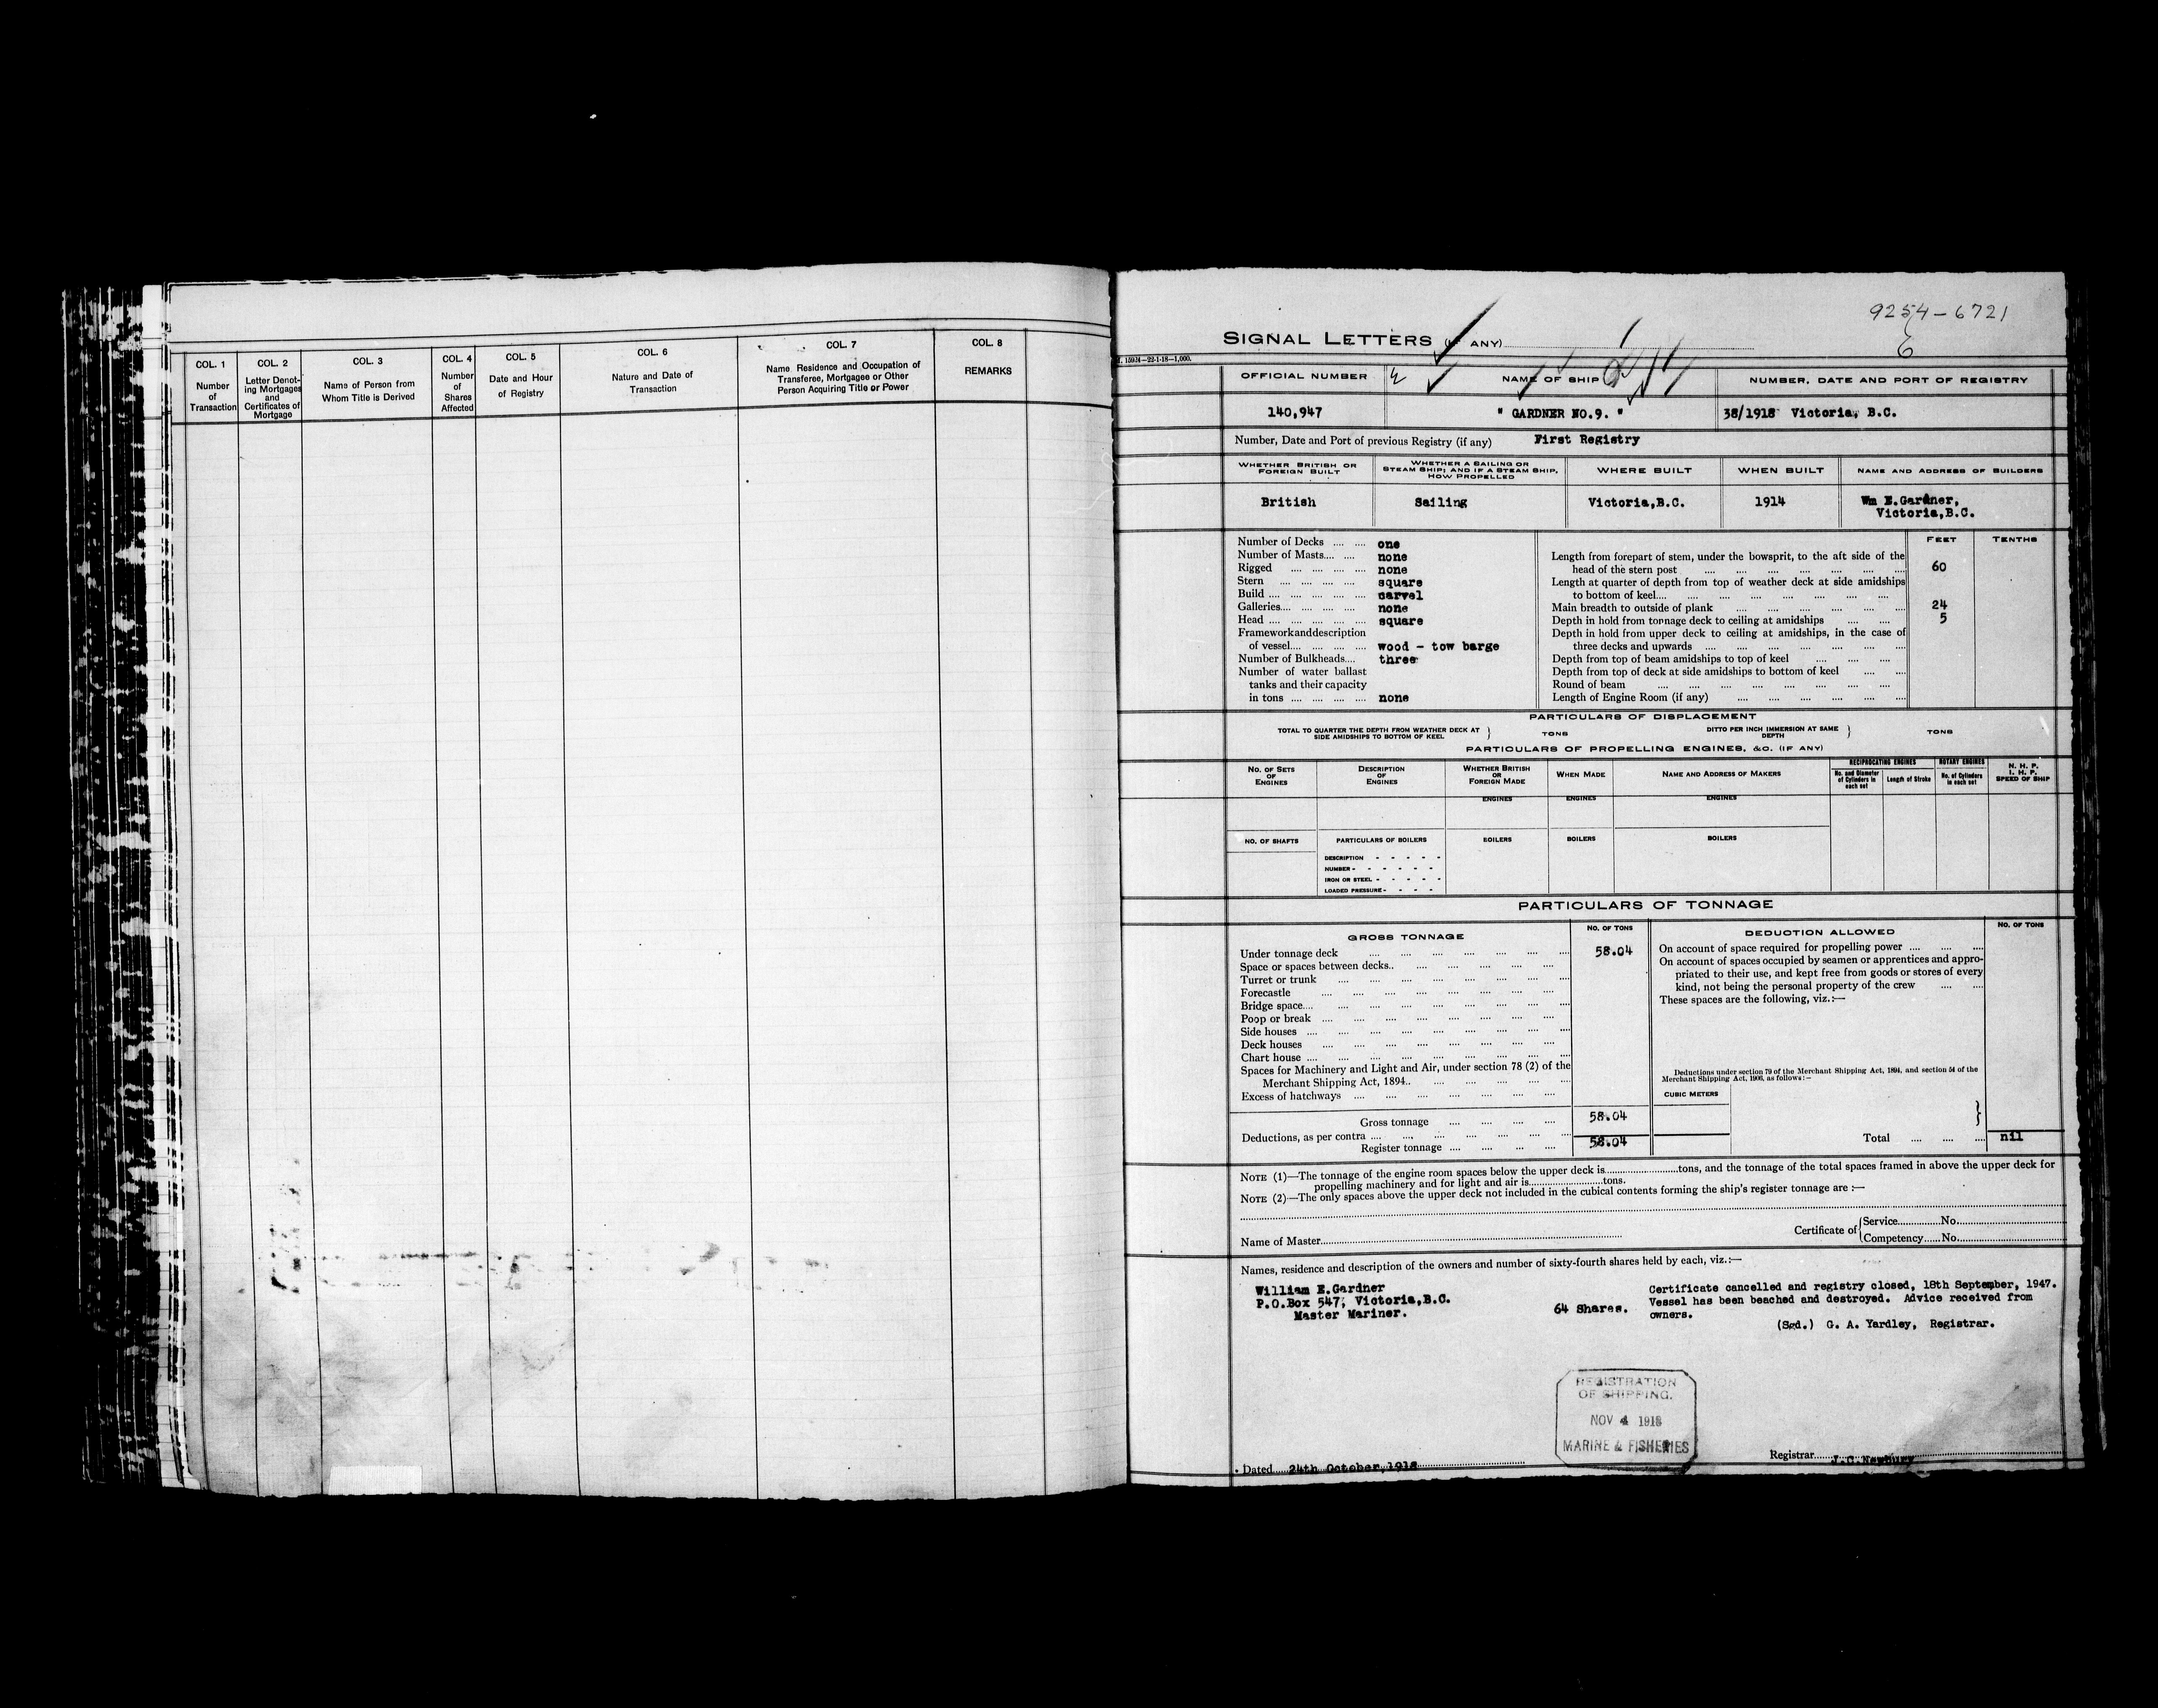 COL. 1
Number
of
Transaction
COL. 2
Letter Denot-
ing Mortgages
and
Certificates of
Mortgage
COL. 3
Name of Person from
Whom Title is Derived
COL. 4
Number
of
Shares
Affected
COL. 5
Date and Hour
of Registry
COL. 6
Nature and Date of
Transaction
COL. 7
Name Residence and Occupation of
Transferee, Mortgagee or Other
Person Acquiring Title or Power
COL. 8
REMARKS
9254-6721
SIGNAL LETTERS ANY)
15934-22-1-18-1,000.
OFFICIAL NUMBER
NAME OF SHIP
NUMBER, DATE AND PORT OF REGISTRY
140,947
" GARDNER NO.9. "
38/1918 Victoria, B.C.
Number, Date and Port of previous Registry (if any) First Registry
WHETHER BRITISH OR
FOREIGN BUILT
WHETHER A SAILING OR
STEAM SHIP; AND IF A STEAM SHIP,
HOW PROPELLED
WHERE BUILT
WHEN BUILT
NAME AND ADDRESS OF BUILDERS
British
Sailing
Victoria,B.C.
1914
Wm E.Gardner,
Victoria,B.C.
Number of Decks .... .... one
Number of Masts.... .... none
Rigged .... .... .... .... none
Stern .... .... .... .... square
Build .... .... .... .... .... carvel
Galleries.... .... .... .... none
Head .... .... .... .... .... square
Framework and description
of vessel.... .... .... .... wood - tow barge
Number of Bulkheads.... three
Number of water ballast
tanks and their capacity
in tons .... .... .... .... none
FEET
TENTHS
Length from forepart of stem, under the bowsprit, to the aft side of the
head of the stern post .... .... .... .... .... .... .... 60
Length at quarter of depth from top of weather deck at side amidships
to bottom of keel.... .... .... .... .... .... .... ....
Main breadth to outside of plank .... .... .... .... .... .... 24
Depth in hold from tonnage deck to ceiling at amidships .... .... 5
Depth in hold from upper deck to ceiling at amidships, in the case of
three decks and upwards .... .... .... .... .... .... ....
Depth from top of beam amidships to top of keel .... .... ....
Depth from top of deck at side amidships to bottom of keel .... ....
Round of beam .... .... .... .... .... .... .... ....
Length of Engine Room (if any) .... .... .... .... .... ....
PARTICULARS OF DISPLACEMENT
TOTAL TO QUARTER THE DEPTH FROM WEATHER DECK AT
SIDE AMIDSHIPS TO BOTTOM OF KEEL } TONS
DITTO PER INCH IMMERSION AT SAME
DEPTH } TONS
PARTICULARS OF PROPELLING ENGINES, &C. (IF ANY)
NO. OF SETS
OF
ENGINES
DESCRIPTION
OF
ENGINES
WHETHER BRITISH
OR
FOREIGN MADE
WHEN MADE
NAME AND ADDRESS OF MAKERS
RECIPROCATING ENGINES
No. and Diameter
of Cylinders in
each set
Length of Stroke
ROTARY ENGINES
No. of Cylinders
in each set
N. H. P.
I. H. P.
SPEED OF SHIP
ENGINES
ENGINES
ENGINES
NO. OF SHAFTS
PARTICULARS OF BOILERS
BOILERS
BOILERS
BOILERS
DESCRIPTION - - - - -
NUMBER - - - - - -
IRON OR STEEL - - - - -
LOADED PRESSURE - - - -
PARTICULARS OF TONNAGE
GROSS TONNAGE
NO. OF TONS
Under tonnage deck .... .... .... .... .... .... .... 58.04
Space or spaces between decks.. .... .... .... .... ....
Turret or trunk .... .... .... .... .... .... .... ....
Forecastle .... .... .... .... .... .... .... ....
Bridge space.... .... .... .... .... .... .... .... ....
Poop or break .... .... .... .... .... .... .... ....
Side houses .... .... .... .... .... .... .... .... ....
Deck houses .... .... .... .... .... .... .... ....
Chart house .... .... .... .... .... .... .... .... ....
Spaces for Machinery and Light and Air, under section 78 (2) of the
Merchant Shipping Act, 1894.. .... .... .... .... ....
Excess of hatchways .... .... .... .... .... .... ....
Gross tonnage .... .... .... .... 58.04
Deductions, as per contra .... .... .... .... .... .... ....
Register tonnage .... .... .... .... 58.04
DEDUCTION ALLOWED
NO. OF TONS
On account of space required for propelling power .... .... ....
On account of spaces occupied by seamen or apprentices and appro-
priated to their use, and kept free from goods or stores of every
kind, not being the personal property of the crew .... ....
These spaces are the following, viz.:—
Deductions under section 79 of the Merchant Shipping Act, 1894, and section 54 of the
Merchant Shipping Act, 1906, as follows:—
CUBIC METERS
Total .... .... .... nil
NOTE (1)—The tonnage of the engine room spaces below the upper deck is............tons, and the tonnage of the total spaces framed in above the upper deck for
propelling machinery and for light and air is............tons.
NOTE (2)—The only spaces above the upper deck not included in the cubical contents forming the ship's register tonnage are :—
Name of Master............
Certificate of { Service............No............
Competency......No............
Names, residence and description of the owners and number of sixty-fourth shares held by each, viz.:—
William E.Gardner
P.O.Box 547, Victoria,B.C.
Master Mariner.
64 Shares.
Certificate cancelled and registry closed, 18th September, 1947.
Vessel has been beached and destroyed. Advice received from
owners.
(Sgd.) G. A. Yardley, Registrar.
REGISTRATION
OF SHIPPING.
NOV 4 1918
MARINE & FISHERIES
Dated....24th October,1918
Registrar........J.C.Newbury